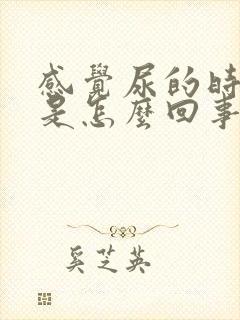 感覺尿的時
是怎麼回事
奚芝英